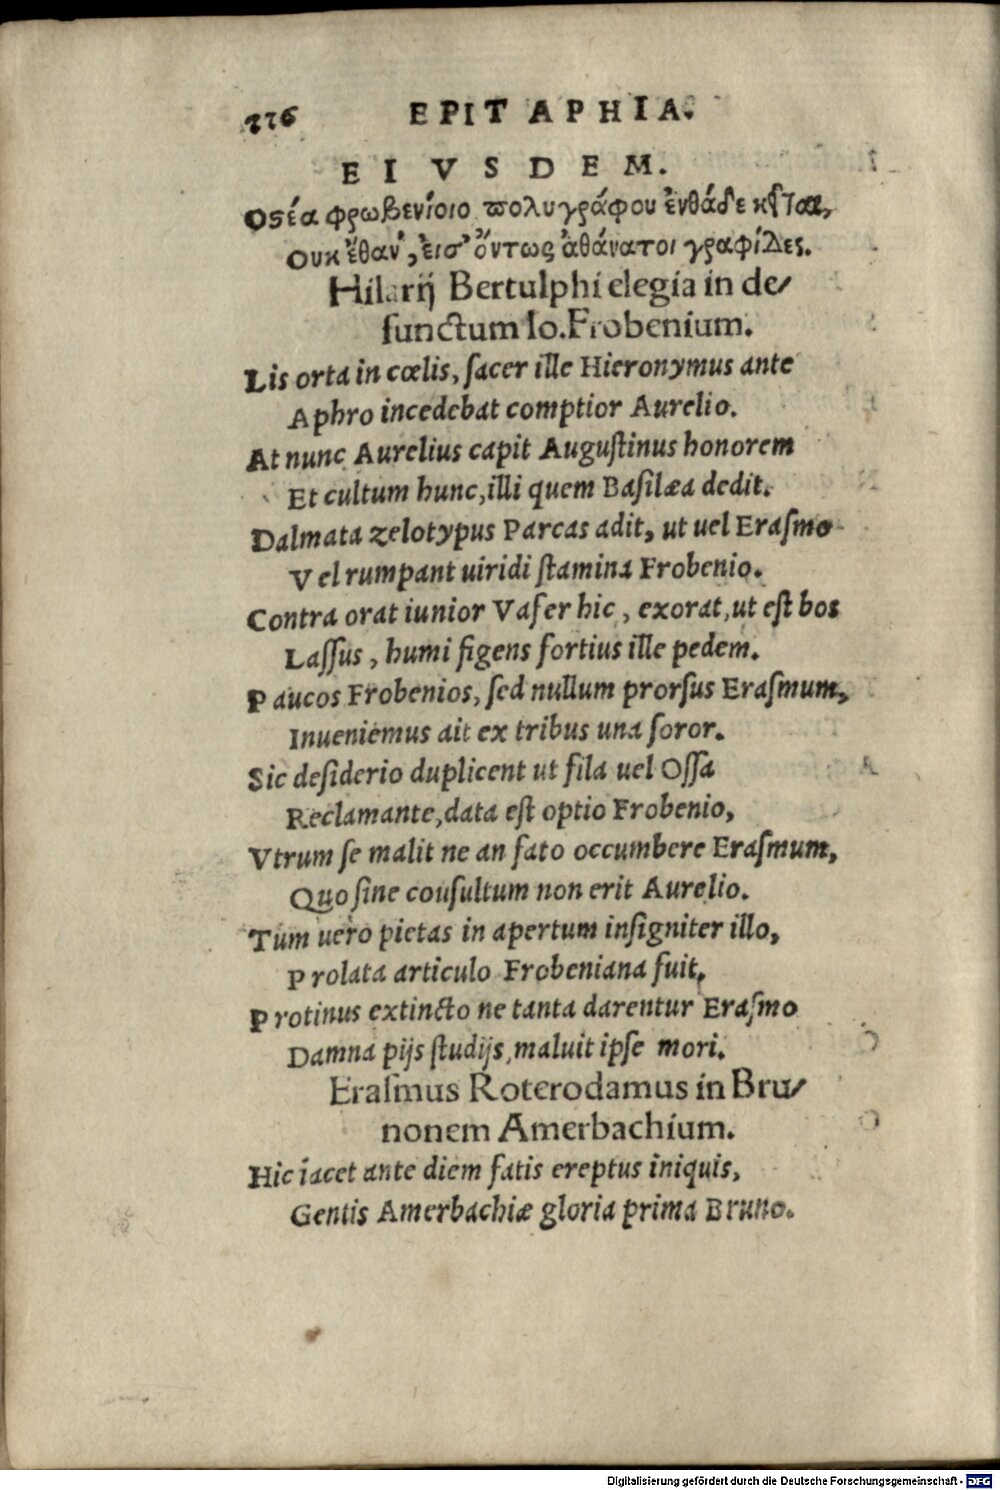 276 EPITAPHIA.
EIVSDEM.
Οςέα φρωβενίοιο πολυγράφου ἐνθάδε κεῖται,
Ουκ ἔθαν', εισ' ὄντως ἀθάνατοι γραφίδες.
Hilarij Bertulphi elegia in de/
functum Io. Frobenium.
Lis orta in cœlis, sacer ille Hieronymus ante
Aphro incedebat comptior Aurelio.
At nunc Aurelius capit Augustinus honorem
Et cultum hunc, illi quem Basilæa dedit.
Dalmata zelotypus Parcas adit, ut uel Erasmo
Vel rumpant uiridi stamina Frobenio.
Contra orat iunior Vafer hic, exorat, ut est bos
Lassus, humi figens fortius ille pedem.
Paucos Frobenios, sed nullum prorsus Erasmum,
Inueniemus ait ex tribus una soror.
Sic desiderio duplicent ut fila uel Ossa
Reclamante, data est optio Frobenio,
Vtrum se malit ne an fato occumbere Erasmum,
Quo sine cousultum non erit Aurelio.
Tum uero pietas in apertum insigniter illo,
Prolata articulo Frobeniana fuit,
Protinus extincto ne tanta darentur Erasmo
Damna pijs studijs, maluit ipse mori.
Erasmus Roterodamus in Bru/
nonem Amerbachium.
Hic iacet ante diem fatis ereptus iniquis,
Gentis Amerbachiæ gloria prima Bruno.
Digitalisierung gefördert durch die Deutsche Forschungsgemeinschaft - DFG